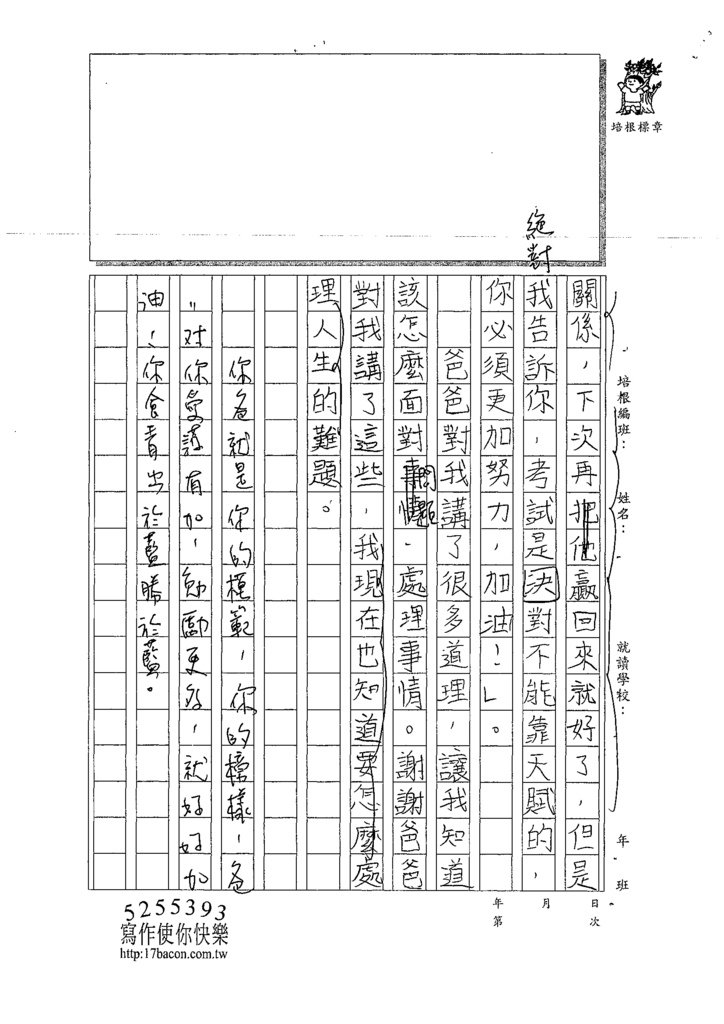 培根標章
培根編班：
姓名：
就讀學校：
年 班
日次
月
年第
絕對
關係，下次再把他贏回來就好了，但是
我告訴你，考試是決對不能靠天賦的，
你必須更加努力，加油！」。
爸爸對我講了很多道理，讓我知道
該怎麼面對事情、處理事情。謝謝爸爸
問題
對我講了這些，我現在也知道要怎麼處
理人生的難題。
你爸就是你的模範，你的榜樣，爸
〃对你愛護有加，勉勵更多，就好好加
油！你會青出於藍勝於藍。
5255393
寫作使你快樂
http:17bacon.com.tw